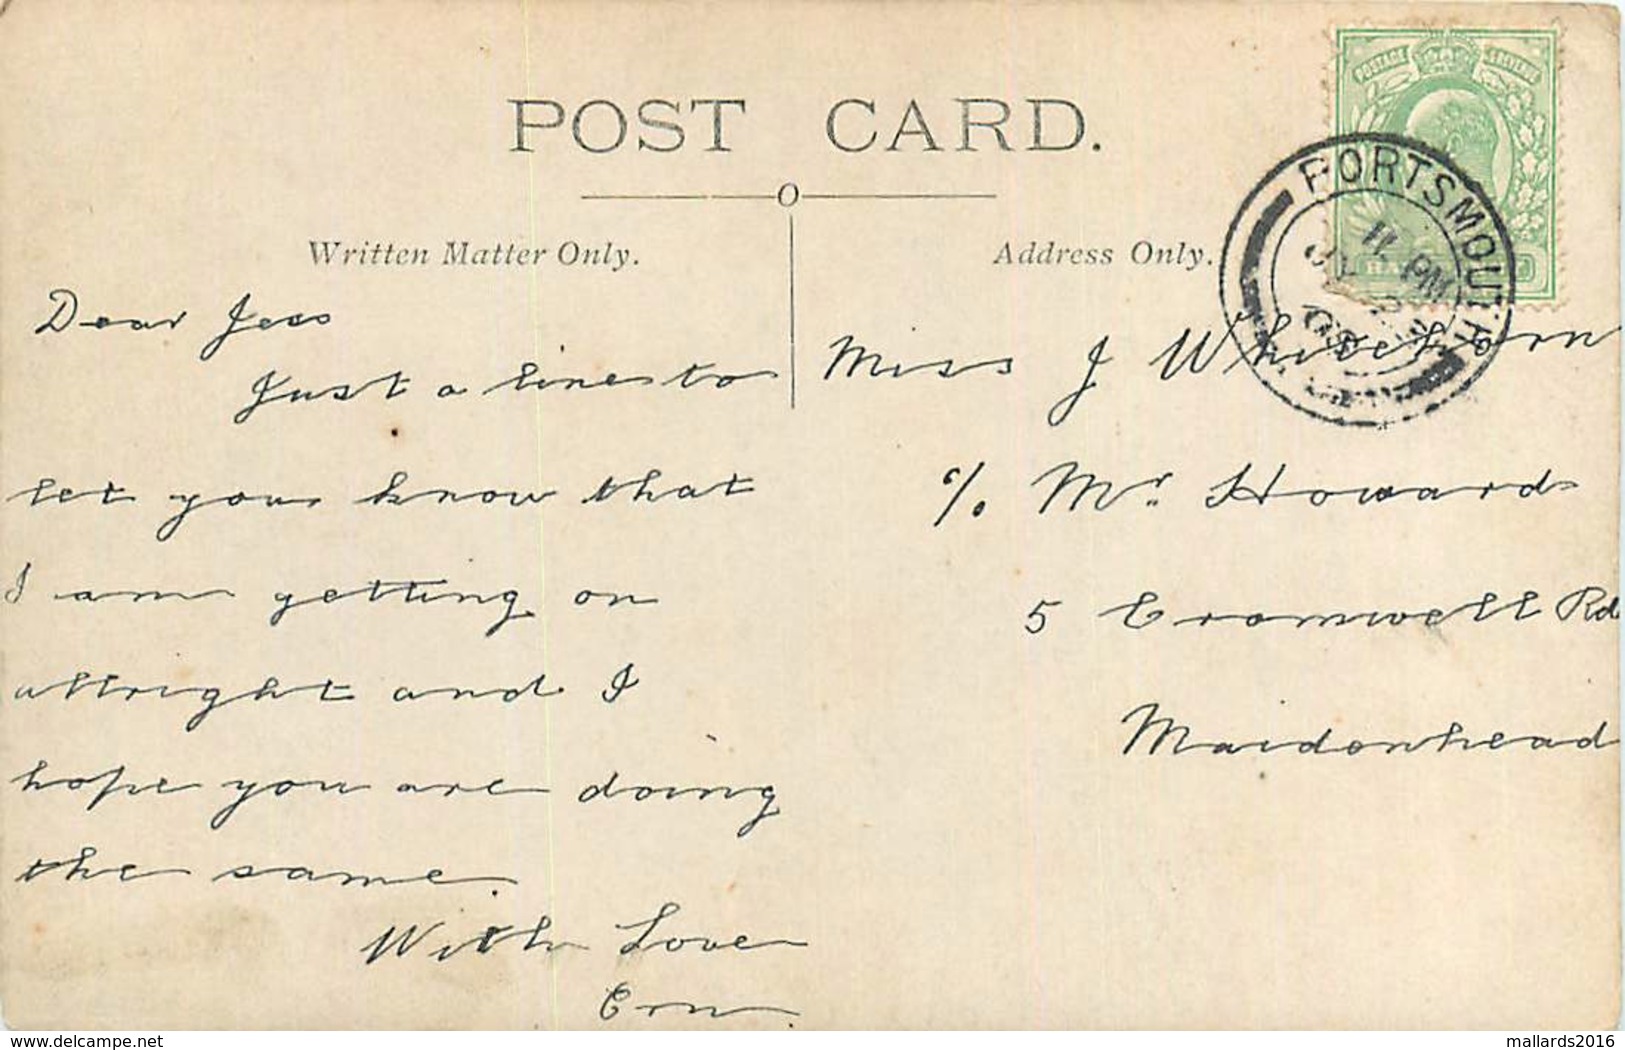 POST CARD.
Written Matter Only.
Address Only.
POSTAGE & REVENUE
PORTSMOUTH
11 PM
JY
Dear Jess
Just a line to
let you know that
I am getting on
allright and I
hope you are doing
the same.
With Love
Ern
Miss J Whitehorn
c/o Mr Howard
5 Cromwell Rd
Maidenhead
delcampe.net
mallards2016